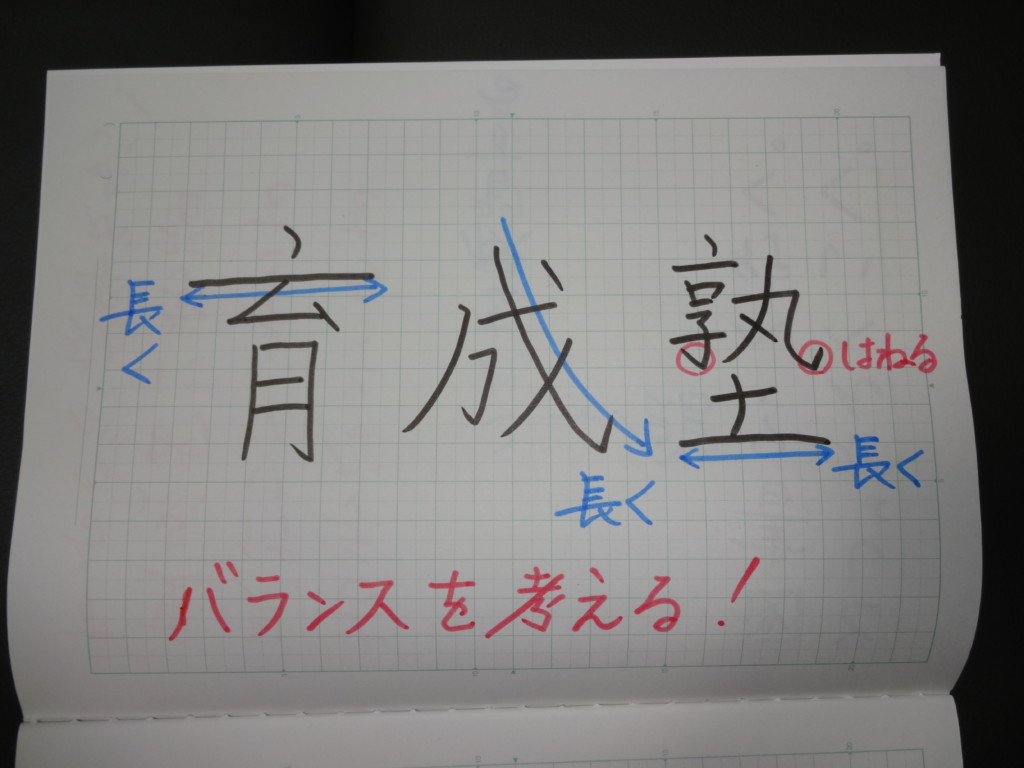 育成塾
長く
はねる
長く
長く
バランスを考える！